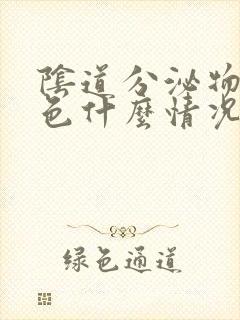 陰道分泌物
色什麼情況
绿色通道